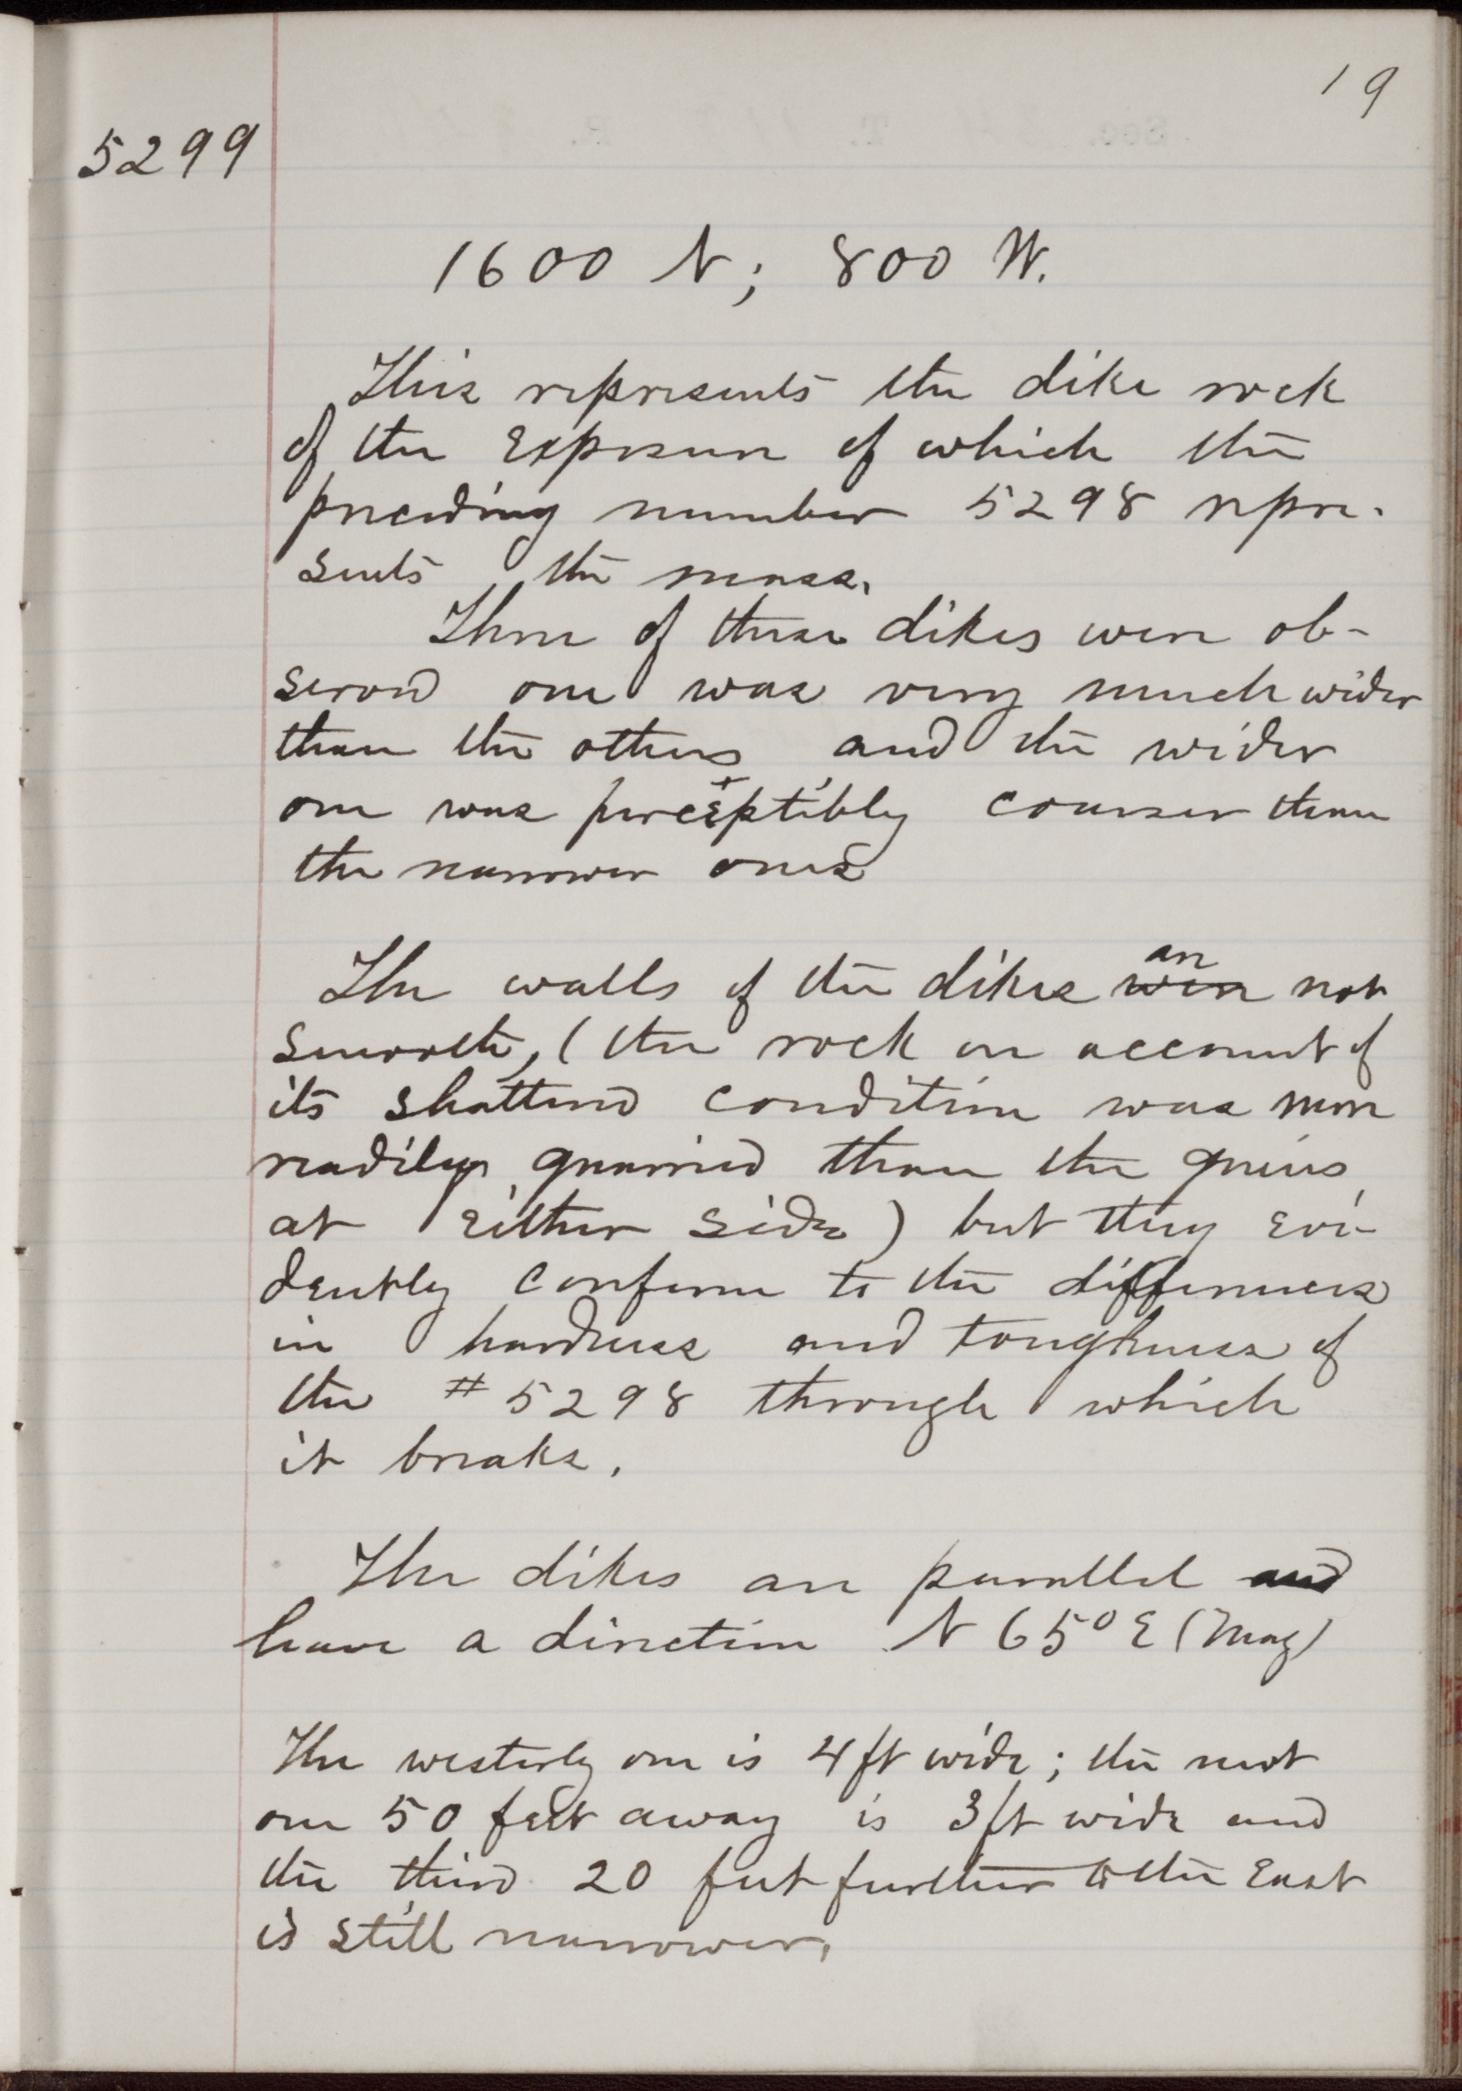 19
5299
1600 N; 800 W.
This represents the dike rock
of the exposure of which the
preceding number 5298 repre-
sents the mass.
Three of these dikes were ob-
served one was very much wider
than the others and the wider
one was perceptibly courser than
the narrower ones
The walls of the dikes are were not
smooth, (the rock on account of
its shattered condition was more
readily quarried than the gneiss
at either side) but they evi-
dently conform to the differences
in hardness and toughness of
the #5298 through which
it breaks.
The dikes are parallel and
have a direction N 65° E (Mag)
The westerly one is 4 ft wide; the next
one 50 feet away is 3 ft wide and
the third 20 feet further to the East
is still narrower.